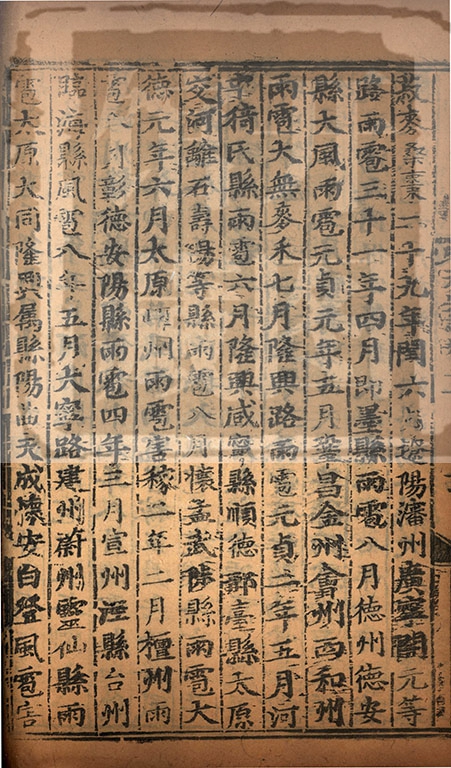 菽麥桑棗二十九年閏六月遼陽瀋州廣寧開元等
路雨雹三十一年四月即墨縣雨雹八月德州德安
縣大風雨雹元貞元年五月鞏昌金州會州西和州
雨雹大無麥禾七月隆興路雨雹元貞二年五月河
中猗氏縣雨雹六月隆興咸寧縣順德邢臺縣太原
交河離石壽陽等縣雨雹八月懷孟武陟縣雨雹大
德元年六月太原崞州雨雹害稼二年二月檀州雨
雹八月彰德安陽縣雨雹四年三月宣州涇縣台州
臨海縣風雹八年五月大寧路建州蔚州靈仙縣雨
雹太原大同隆興屬縣陽曲天成懷安白登風雹害